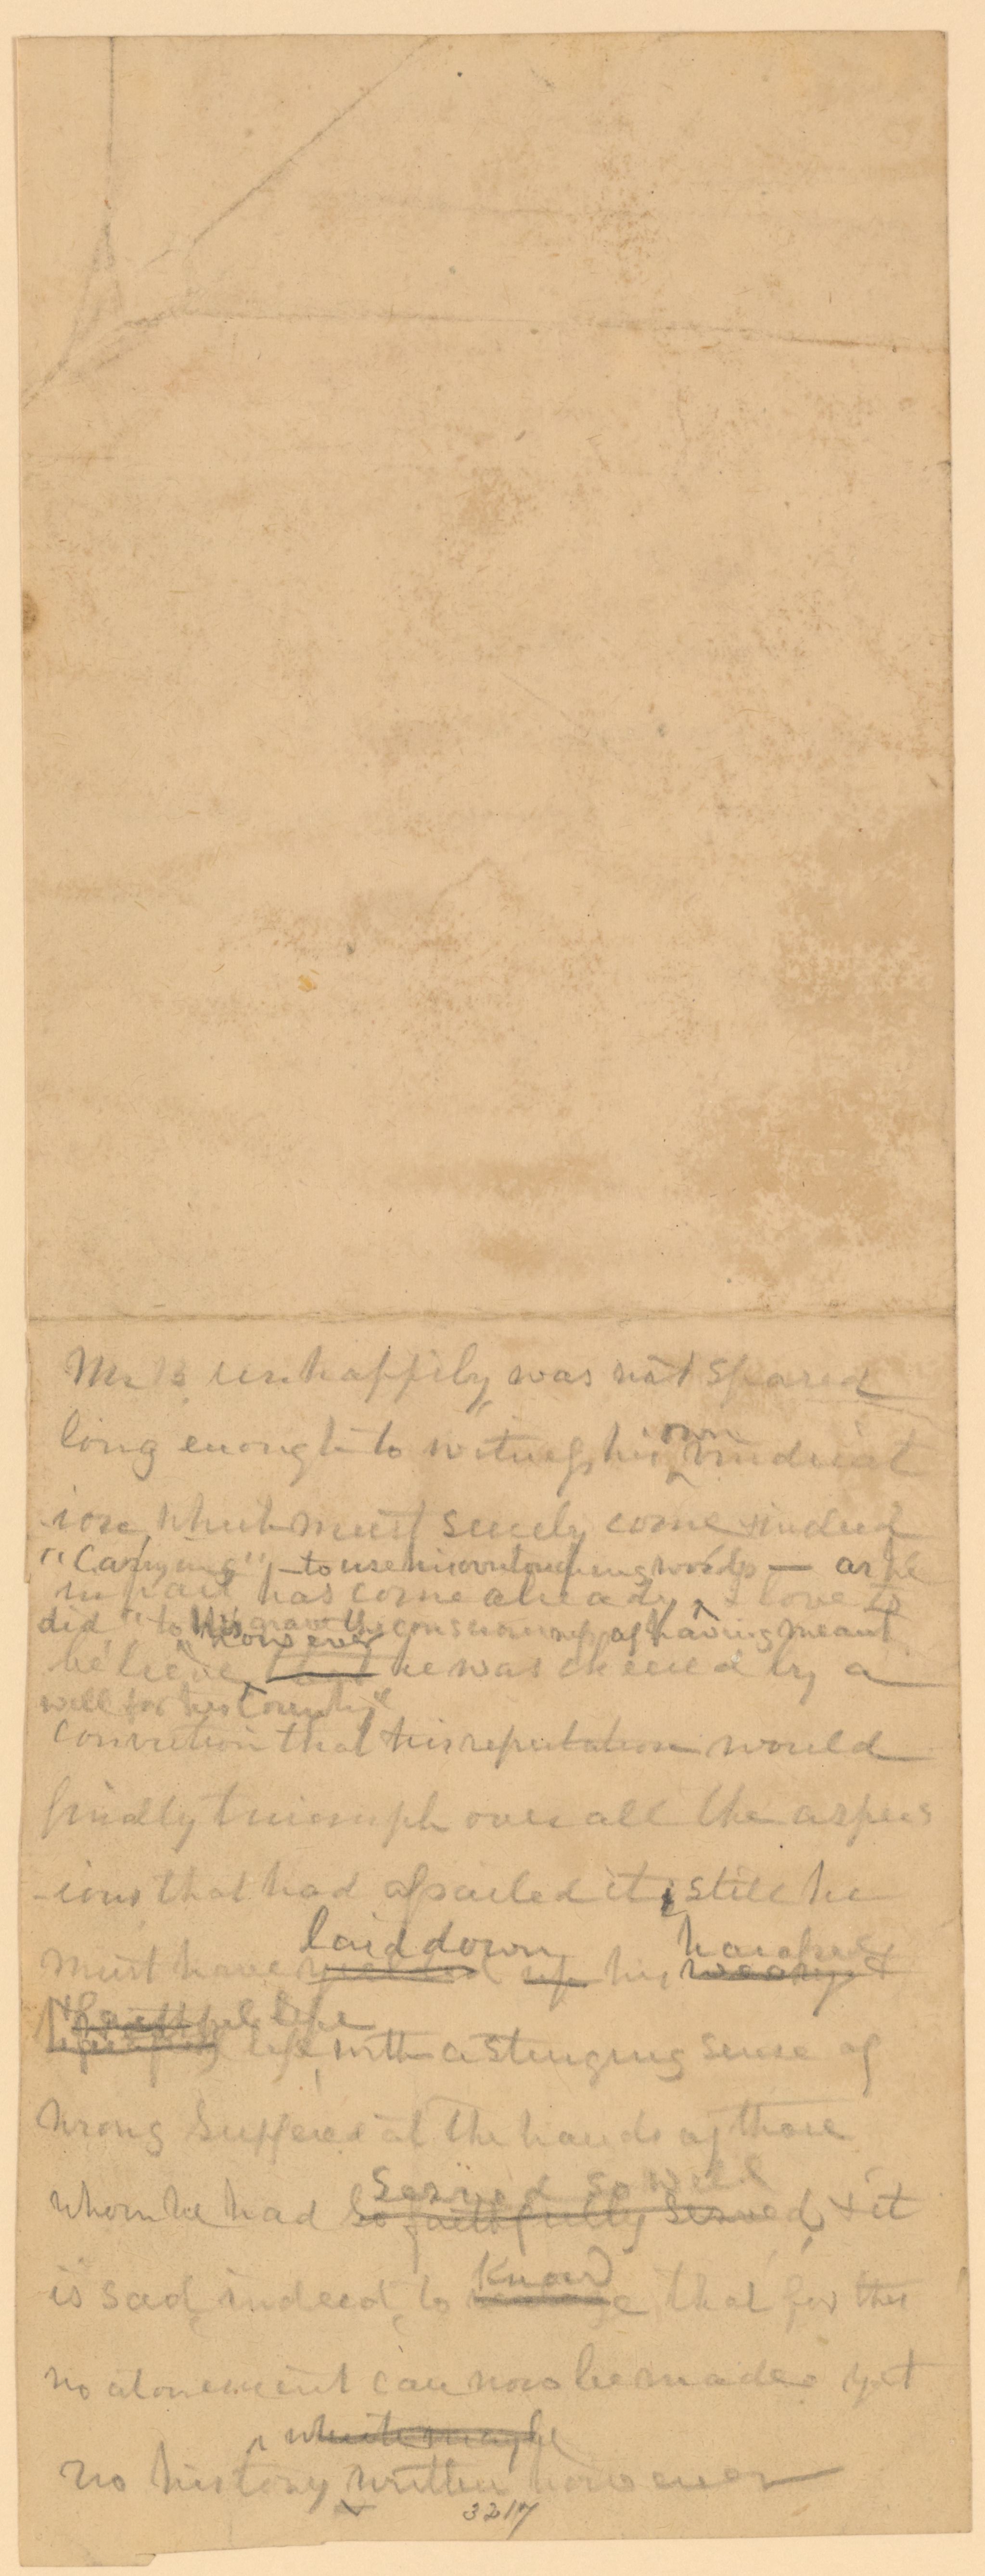 Mr B unhappily was not spared
long enough to witness his own vindicat
-ion which must surely come & indeed
"Carrying" - to use his own touching words — as he
in part has come already, I love to
did "to his grave the consciousness of having meant
however
believe that he was cheered by a
well for his Country"
conviction that his reputation would
finally triumph over all the aspers
-ions that had assailed it; still he
laid down
must have up his weary &
faithful life
life, with a stinging sense of
wrong suffered at the hands of those
served so well
whom he had so faithfully served, & it
know
is sad, indeed, to that for this
no atonement can now be made yet
which may be
no history written however
3217